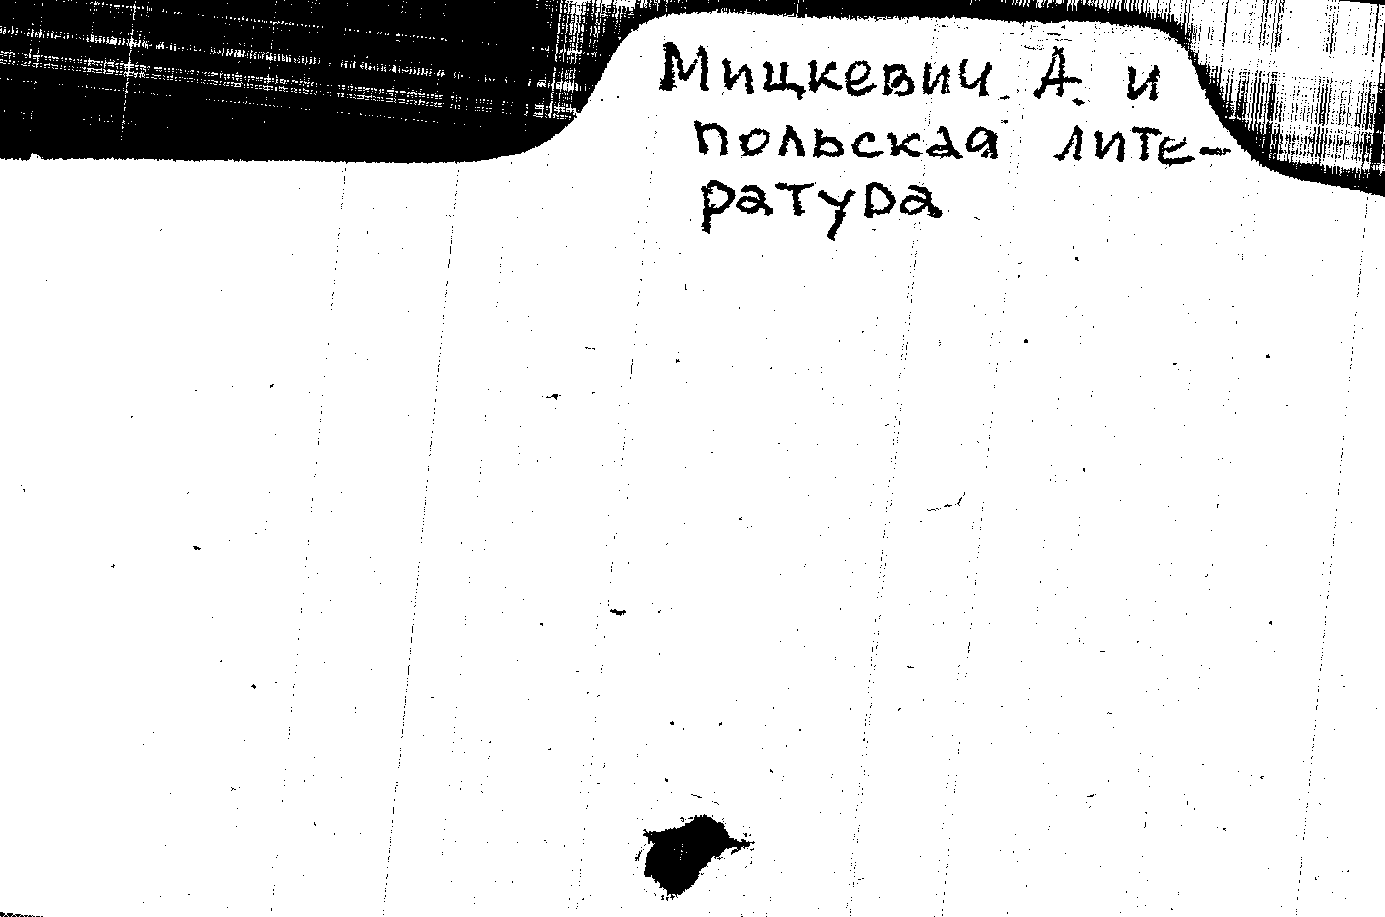 Мицкевич А. и
польская лите-
ратура